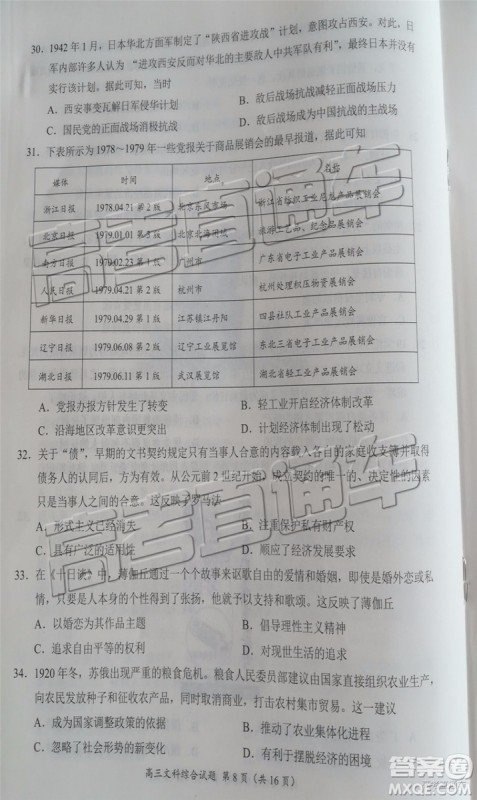 30. 1942年1月，日本华北方面军制定了“陕西省进攻战”计划，意图攻占西安。对此，日
军内部许多人认为“进攻西安反而对华北的主要敌人中共军队有利”，最终日本并没有
实行该计划。据此可知，当时
A. 西安事变瓦解日军侵华计划 B. 敌后战场抗战减轻正面战场压力
C. 国民党的正面战场消极抗战 D. 敌后战场成为中国抗战的主战场
31. 下表所示为1978～1979年一些党报关于商品展销会的最早报道，据此可知
媒体 时间 地点
浙江日报 1978.04.21 第2版 北京东风市场 浙江省纺织工业产品展销会
北京日报 1979.01.01 第3版 北京北海 工艺品、纪念品展销会
南方日报 1979.02.23 第1版 广州市 广东省电子工业产品展销会
人民日报 1979.04.21 第2版 杭州市 杭州处理积压物资展销会
新华日报 1979.04.29 第1版 江苏镇江丹阳 四县社队工业产品展销会
辽宁日报 1979.06.08 第2版 辽宁工业展览馆 东北三省电子工业产品展销会
湖北日报 1979.06.11 第1版 武汉展览馆 湖北省轻工业产品展销会
A. 党报办报方针发生了转变 B. 轻工业开启经济体制改革
C. 沿海地区改革意识更突出 D. 计划经济体制出现了松动
32. 关于“债”，早期的文书契约规定只有当事人合意的内容载入各自的家庭收支簿并取得
债务人的认同后，方为有效。从公元前2世纪开始，成焦契约的唯一的、决定性的因素
只是当事人之间的合意，这反映了罗马法
A. 形式主义已经消失 B. 注重保护私有财产权
C. 具有广泛的适用性 D. 顺应了经济发展需要
33. 在《十日谈》中，薄伽丘通过一个个故事来讴歌自由的爱情和婚姻，即使是婚外恋或私
情，只要是人本身的个性得到了张扬，他就会给以支持和歌颂。这反映了薄伽丘
A. 以婚恋为其作品主题 B. 倡导理性主义精神
C. 追求自由平等的权利 D. 对现世生活的追求
34. 1920年冬，苏俄出现严重的粮食危机。粮食人民委员部建议由国家直接组织农业生产，
向农民发放种子和征收农产品，同时取消商业，打击农村集市贸易。这一建议
A. 成为国家调整政策的依据 B. 推动了农业集体化进程
C. 忽略了社会形势的变化 D. 有利于摆脱经济的困境
高三文科综合试题 第8页（共16页）
高考直通车
高考直通车